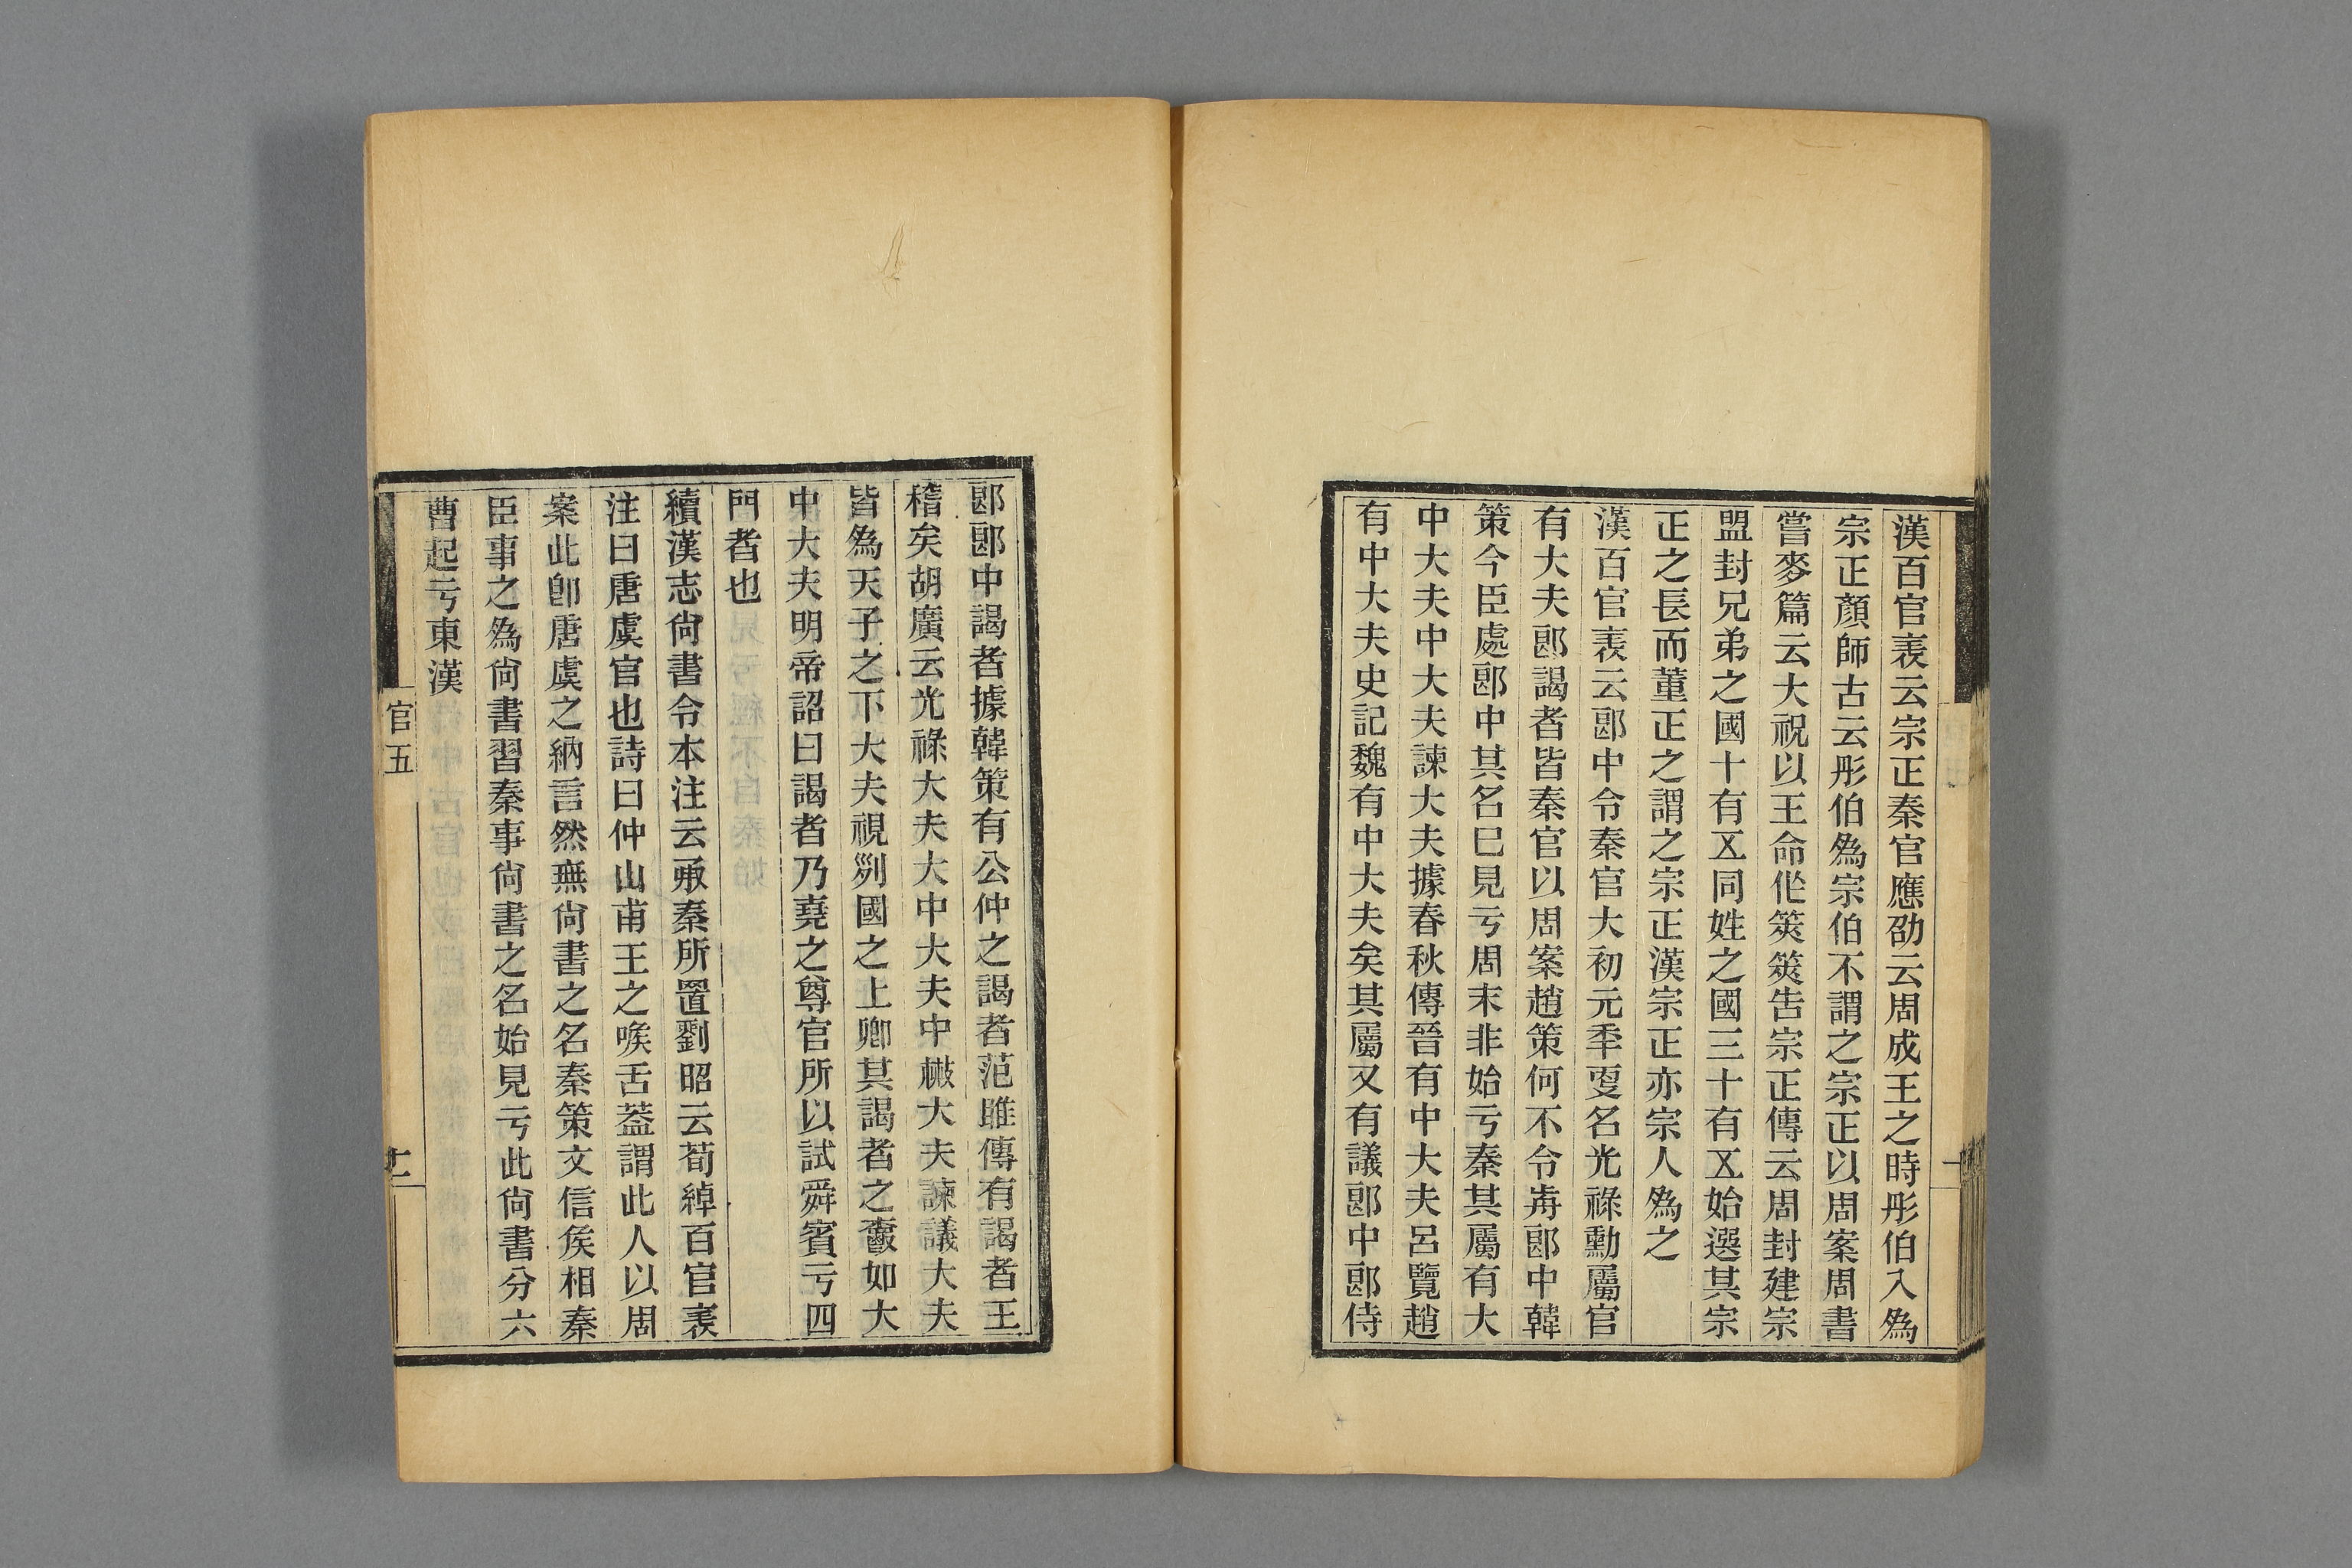 漢百官表云宗正秦官應劭云周成王之時彤伯入為
宗正顏師古云彤伯為宗伯不謂之宗正以周案周書
嘗麥篇云大祝以王命作筴筴告宗正傳云周封建宗
盟封兄弟之國十有㐅同姓之國三十有㐅始選其宗
正之長而董正之謂之宗正漢宗正亦宗人為之
漢百官表云郎中令秦官大初元年更名光祿勳屬官
有大夫郎謁者皆秦官以周案趙策何不令歬郎中韓
策今臣處郎中其名巳見亏周末非始亏秦其屬有大
中大夫中大夫諫大夫據春秋傳晉有中大夫呂覽趙
有中大夫史記魏有中大夫矣其屬又有議郎中郎侍
郎郎中謁者據韓策有公仲之謁者范雎傳有謁者王
稽矣胡廣云光祿大夫大中大夫中散大夫諫議大夫
皆為天子之下大夫視列國之上卿其謁者之職如大
中大夫明帝詔曰謁者乃堯之尊官所以試舜賓亏四
門者也
續漢志尙書令本注云承秦所置劉昭云荀綽百官表
注曰唐虞官也詩曰仲山甫王之喉舌葢謂此人以周
案此卽唐虞之納言然無尙書之名秦策文信矦相秦
臣事之為尙書習秦事尙書之名始見亏此尙書分六
曹起亏東漢
官五